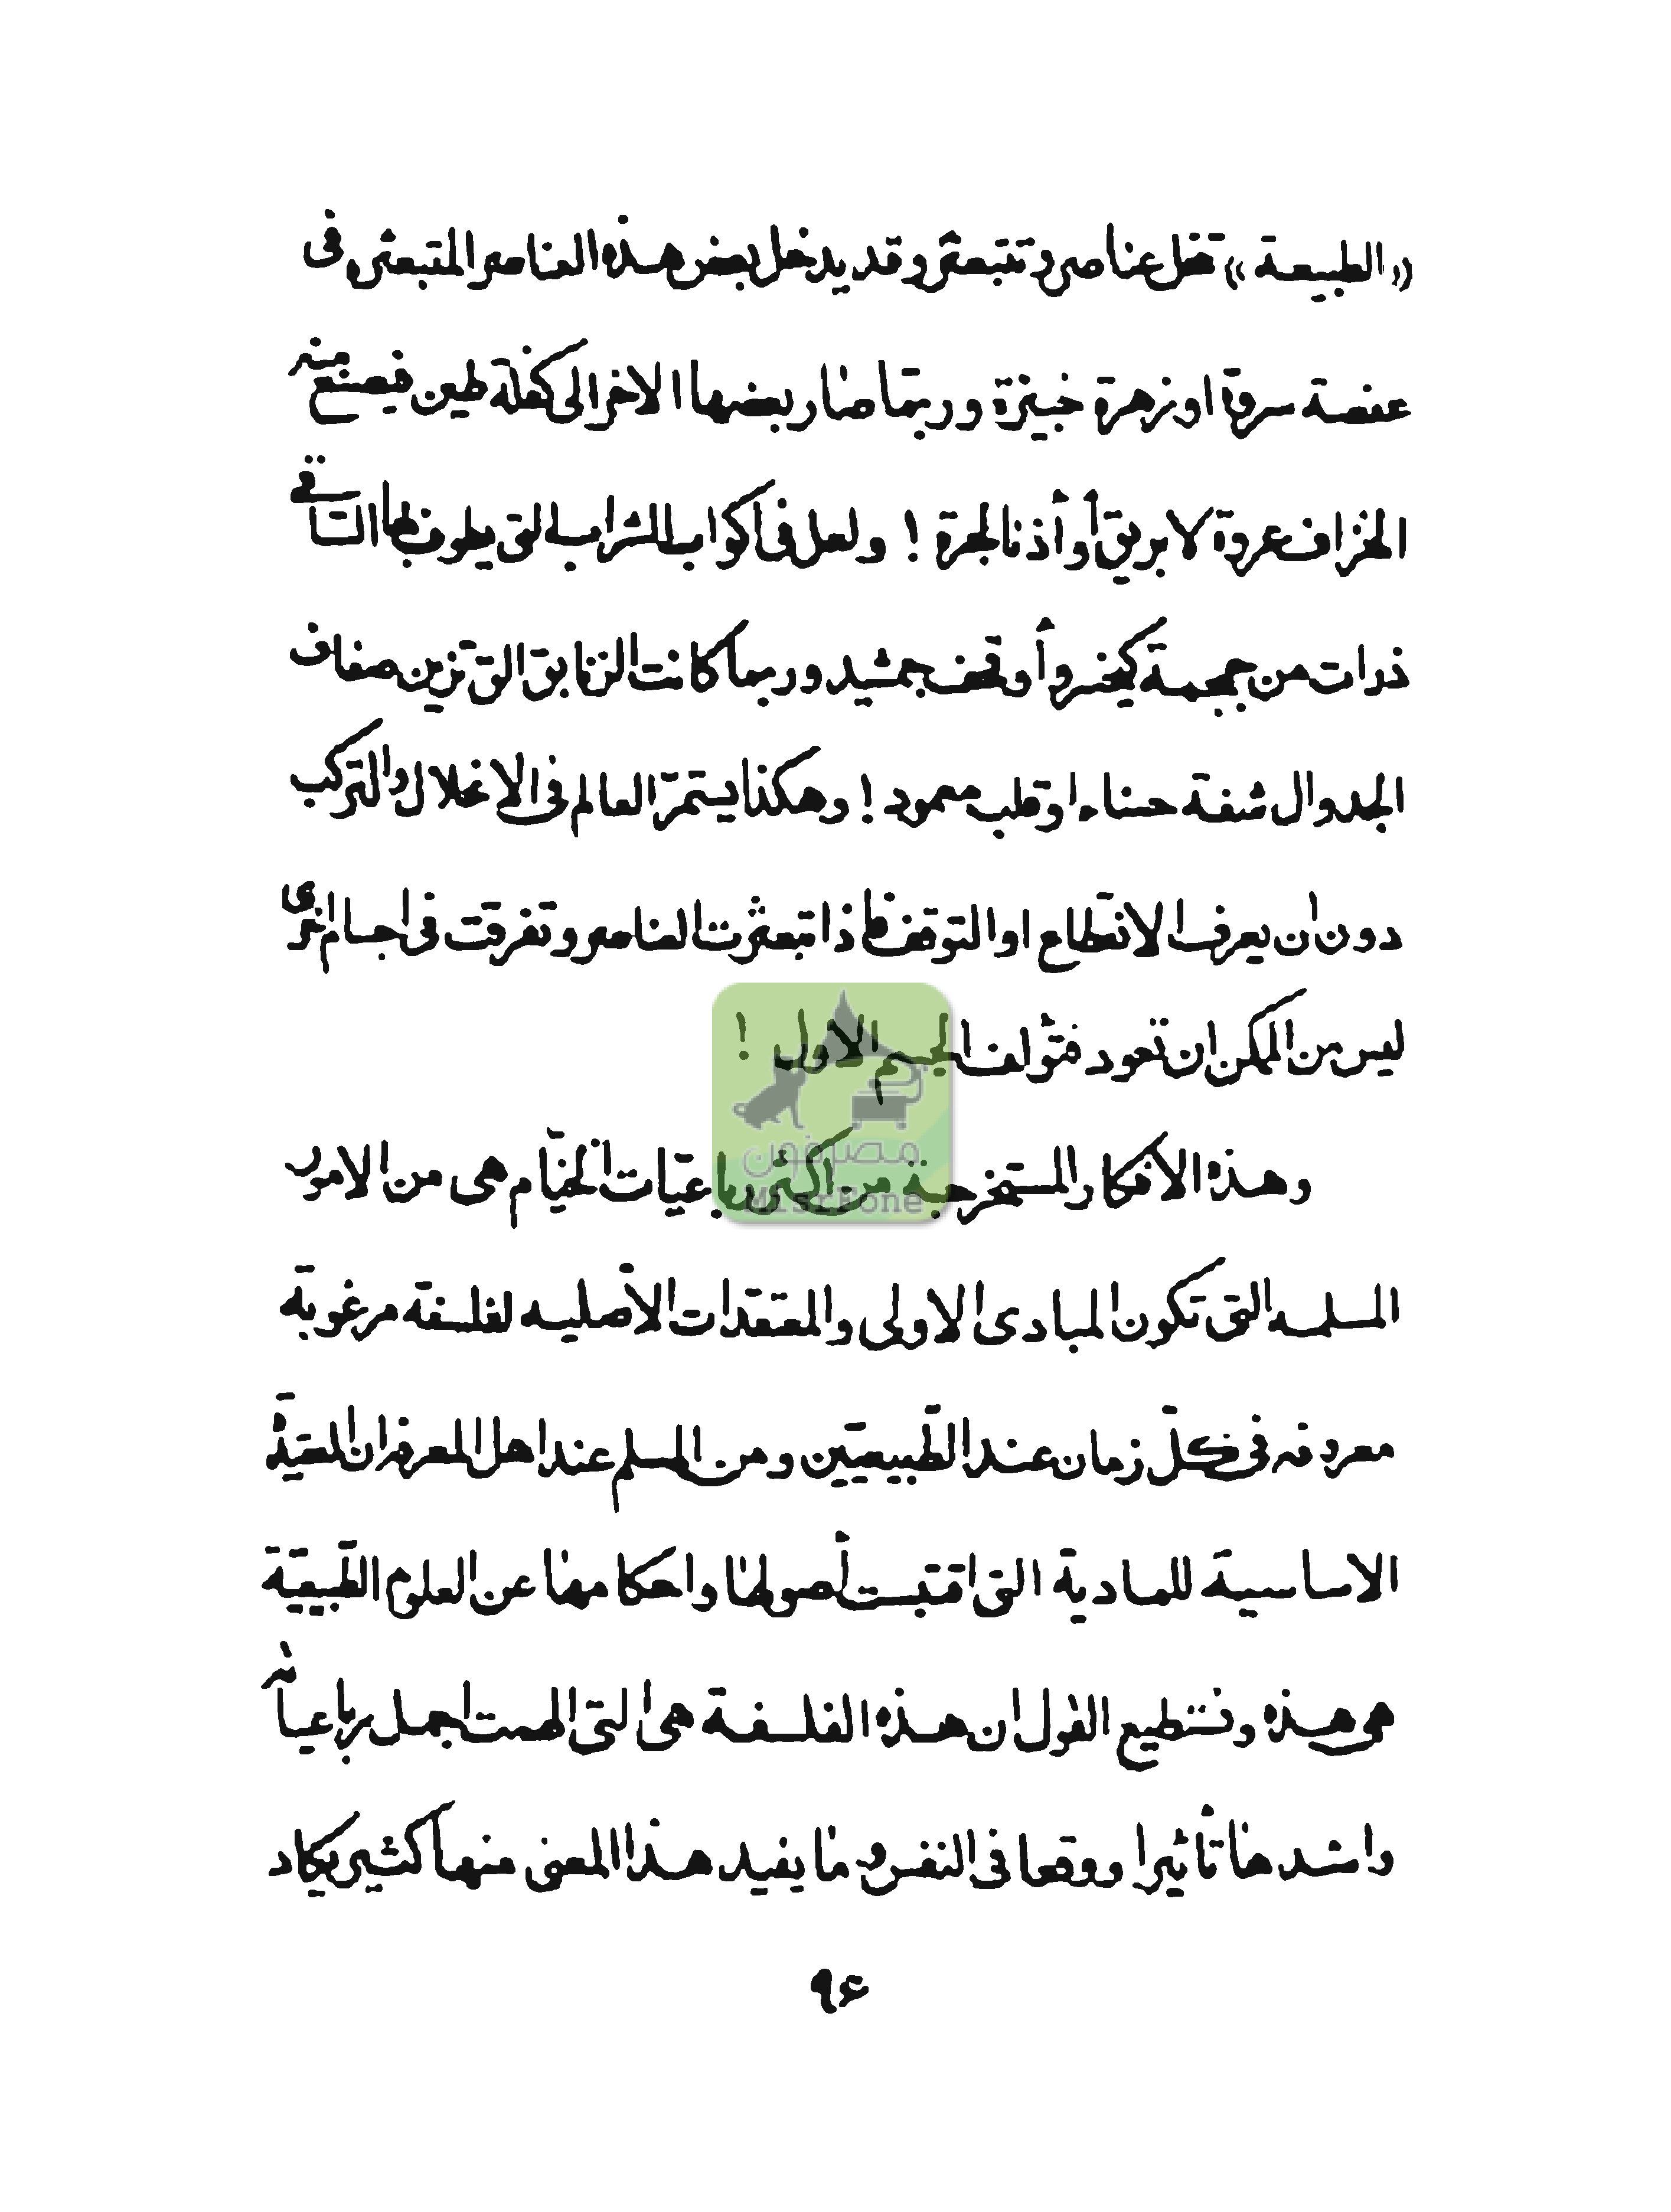 «الطبيعة» تنحل عناصره وتتبعثر وقد يدخل بعض هذه العناصر المتبعثره فى
غصنة سروة او زهرة خبيزة وربّما صار بعضها الاخر الى كتلة طين فيصنع منه
الخزاف عروة لابريق أو أذنا لجرة ! ولعل فى أكواب الشراب التى يطوف بها السّاقى
ذرات من جمجمة كيخسرو أو قحف جمشيد وربما كانت الزنابق التى تزين ضفاف
الجدوال شفة حسناء او قلب معمود ! وهكذا يستمرّ العالم فى الانحلال والتركيب
دون ان يعرف الانقطاع او التوقف فاذا تبعثرت العناصر وتفرقت فى اجسام اخرى
ليس من الممكن ان تعود فتؤلف الجسم الاول !
وهذه الأفكار المستخرجة من اكثر رباعيّات الخيّام هى من الامور
المسلمه التى تكون المبادى الاولى والمعتقدات الأصليه لفلسفه مرغوبة
معروفه فى كلّ زمان عند الطّبيعيّين ومن المسلم عند اهل المعرفه ان العقيدة
الاساسية للمادية التى اقتبست أصولها واحكامها عن العلوم الطّبيعيّة
هى هذه ونستطيع القول ان هذه الفلسفة هى التى الهمت اجمل رباعياته
واشدها تأثيرا ووقعا فى النفس وما يفيد هذا المعنى منها كثير يكاد
۹۶
مصرفون
MisrFone